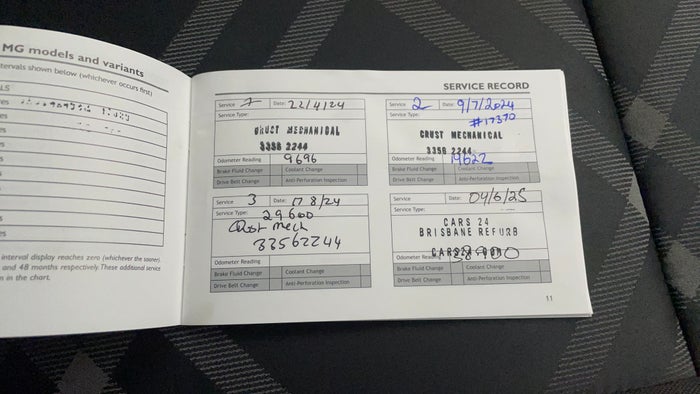 MG models and variants
tervals shown below (whichever occurs first)
LS
res
es
es
es
s
s
es
interval display reaches zero (whichever the sooner).
and 48 months respectively. These additional service
n in the chart.
SERVICE RECORD
Service Date: 22/4/24
Service Type:
CRUST MECHANICAL
3356 2244
Odometer Reading 9696
Brake Fluid Change Coolant Change
Drive Belt Change Anti-Perforation Inspection
Service 2 Date: 9/7/2024
Service Type: #17370
CRUST MECHANICAL
3356 2244
Odometer Reading 19622
Brake Fluid Change Coolant Change
Drive Belt Change Anti-Perforation Inspection
Service 3 Date: 17 8/24
Service Type: 29600
Crust Mech
33562244
Odometer Reading
Brake Fluid Change Coolant Change
Drive Belt Change Anti-Perforation Inspection
Service Date: 04/6/25
Service Type:
CARS 24
BRISBANE REFURB
Odometer Reading
Brake Fluid Change Coolant Change
Drive Belt Change Anti-Perforation Inspection
11